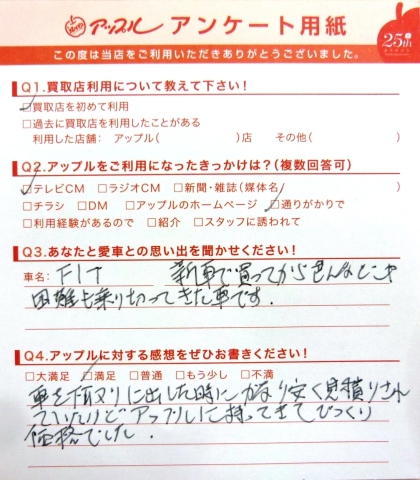 アップル アンケート用紙
25th
この度は当店をご利用いただきありがとうございました。
Q1.買取店利用について教えて下さい!
☑買取店を初めて利用
□過去に買取店を利用したことがある
利用した店舗: アップル( )店 その他( )
Q2.アップルをご利用になったきっかけは?(複数回答可)
☑テレビCM □ラジオCM □新聞・雑誌(媒体名 )
□チラシ □DM □アップルのホームページ ☑通りがかりで
□利用経験があるので □紹介 □スタッフに誘われて
Q3.あなたと愛車との思い出を聞かせください!
車名: FIT 新車で買ってから色んなとこや
困難も乗り切ってきた車です.
Q4.アップルに対する感想をぜひお書きください!
□大満足 ☑満足 □普通 □もう少し □不満
車を下取りに出した時にかなり安く見積りされ
ていたけどアップルに持ってきてびっくり
価格でした.